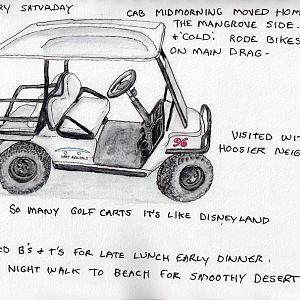 RY SATURDAY
CAB MIDMORNING MOVED HOM
THE MANGROVE SIDE.
+ "COLD". RODE BIKES
ON MAIN DRAG.
VISITED WIT
HOOSIER NEIG
CART RENTALS
96
SO MANY GOLF CARTS IT'S LIKE DISNEYLAND
ED B'S + T'S FOR LATE LUNCH EARLY DINNER.
NIGHT WALK TO BEACH FOR SMOOTHY DESERT